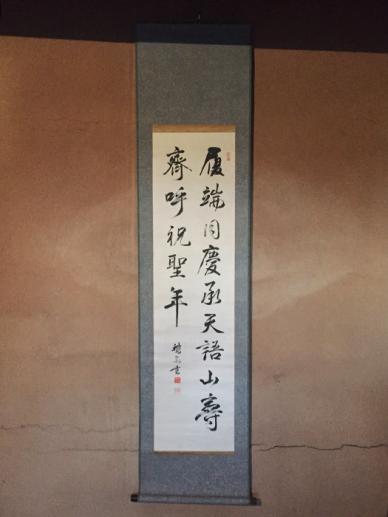 履端同慶承天語山壽
齊呼祝聖年
書